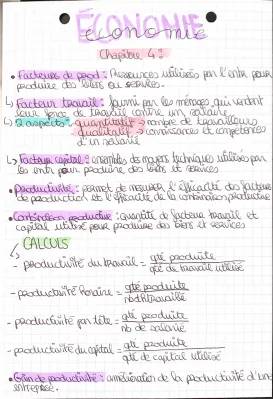 ÉCONOMIE
économie
Chapitre 4 :
• Facteurs de prod : Ressources utilisées par l'entr pour
produire des biens ou services.
↳ Facteur travail : fourni par les ménages qui vendent
leur force de travail contre un salaire
↳ 2 aspects : quantitatif → nombre de travailleurs
qualitatif → connaissances et compétences
d'un salarié
↳ Facteur capital : ensembles de moyens techniques utilisés par
les entr pour produire des biens et services
• Productivité : permet de mesurer l'efficacité des facteurs
de production et l'efficacité de la combinaison productive
• Combinaison productive : quantité de facteur travail et
capital utilisé pour produire des biens et services
CALCULS
↳ - productivité du travail = qté produite / qté de travail utilisé
- productivité horaire = qté produite / nb d'h travaillé
- productivité par tête = qté produite / nb de salarié
- productivité du capital = qté produite / qté de capital utilisé
• Gain de productivité : amélioration de la productivité d'une
entreprise.